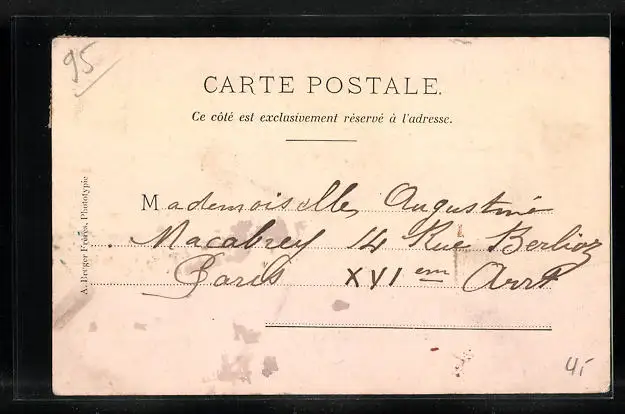 95
CARTE POSTALE.
Ce côté est exclusivement réservé à l'adresse.
Mademoiselle Augustine
Macabrey 14 Rue Berlioz
Paris XVI em Arrt
A. Breger Frères, Phototypie
4,-